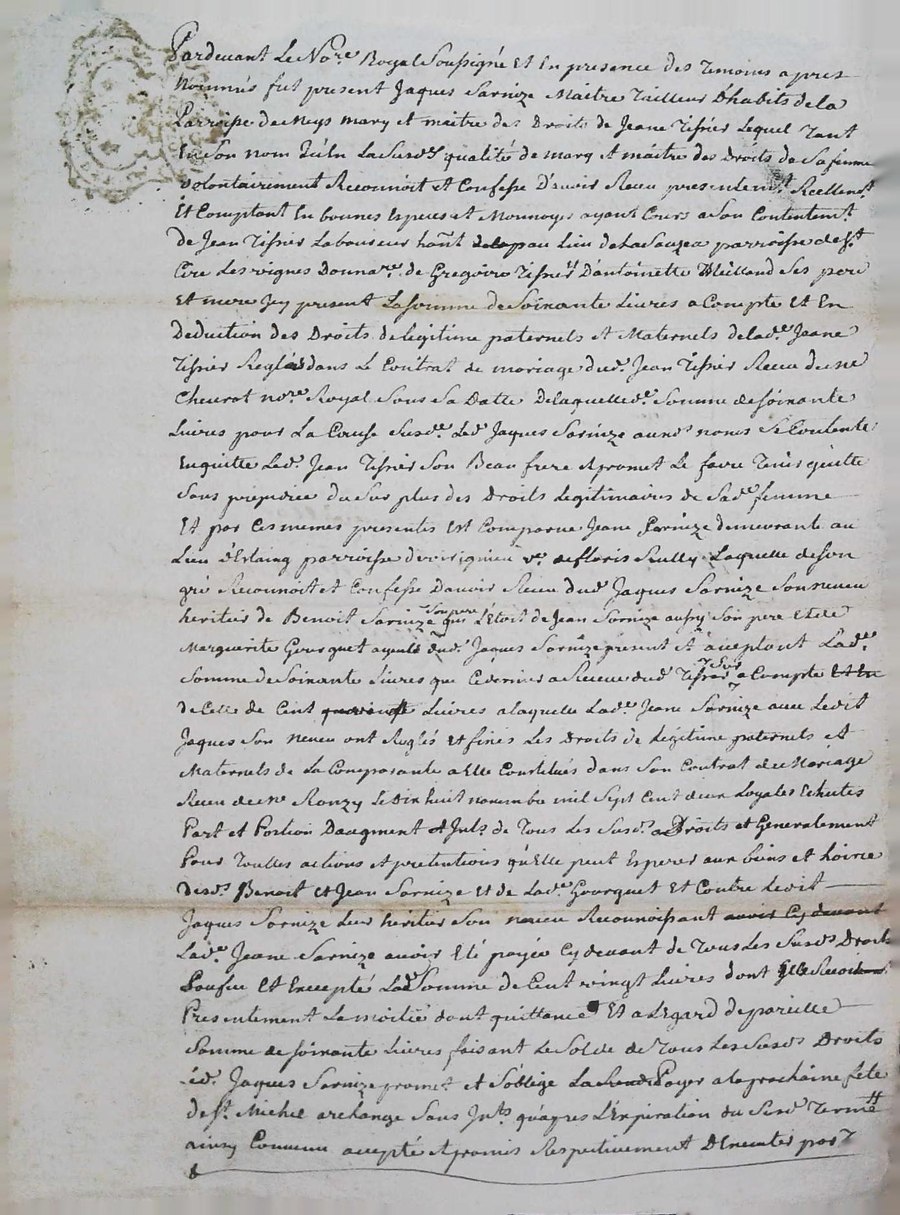 Pardevant Le No.re Royal Soussigné Et En presence des Temoins apres
Nommés fut present Jaques Sarnize Maitre Tailleur D'habits de la
Parroisse de mary et maitre des Droits de Jeane Tisner Lequel Tant
En Son nom qualité de mary et maitre des Droits de Sa femme
volontairement Reconnoit et Confesse D'avoir Receu presentem.t Reellem.t
Et Comptant En bonnes Especes et Monnoyes ayant Cours a Son Contentem.t
de Jean Tisner Laboureur Lieu de La Sauzea parroisse de S.t
Cire Les vignes Donna.re de Gregoire Tisner D'antoinette Ses pere
Et mere Jcy present La Somme de Soixante Livres a Compte Et En
Deduction des Droits de Legitime paternels et Maternels de lad.e Jeane
Tisner Reglés dans Le Contrat de mariage dud. Jean Tisner Receu de me
Cheurot no.re Royal Sous Sa Datte De laquelle d. Somme de Soixante
Livres pour La Cause Susd.e Led. Jaques Sarnize noms Se Contente
En quitte Led. Jean Tisner Son Beau frere et promet Le faire Tenir quitte
Sans prejudice du Sur plus des Droits Legitimaires de Sad.e femme
Et par Ces memes presentes Est Comparue Jeane Sarnize demeurante au
Lieu parroisse v.e de Laquelle de Son
gré Reconnoit et Confesse D'avoir Receu dud. Jaques Sarnize Son neveu
heritier de Benoit Sarnize Son pere qui L'etoit de Jean Sarnize aussy Son pere Et de
Marguerite Gourguet ayeule dud. Jaques Sarnize present et acceptant Lad.e
Somme de Soixante Livres que Ce dernier a Receue dud. Tisner a Compte Et En
de Celle de Cent Livres a laquelle Lad.e Jeane Sarnize avec Ledit
Jaques Son neveu ont Reglés et fixés Les Droits de Legitime paternels et
Maternels de La Composante a Elle Constitués dans Son Contrat de Mariage
Receu de me Ronzy Le Dix huit novembre mil Sept Cent deux Loyales Echutes
Part et Portion D'augment et Jnts de Tous Les Susd.s Droits et Generalement
Pour Toutes actions et pretentions qu'Elle peut Esperer aux biens et hoirie
desd.s Benoit et Jean Sarnize Et de Lad.e Gourguet Et Contre Ledit
Jaques Sarnize Leur heritier Son neveu Reconnoissant avoir Cy devant
Lad.e Jeane Sarnize avoir Eté payée Cy devant de Tous Les Susd.s Droits
Et Excepté Lad. Somme de Cent vingt Livres dont Elle Recoit
Presentement La moitié dont quittance Et a L'Egard de pareille
Somme de Soixante Livres faisant Le Solde de Tous Les Susd.s Droits
Jaques Sarnize promet et S'oblige La Payer a la prochaine fete
de S.t Michel archange Sans Jnts qu'apres L'Expiration du Susd. Terme
ainsy Convenu accepté et promis Respectivement D'Executer par